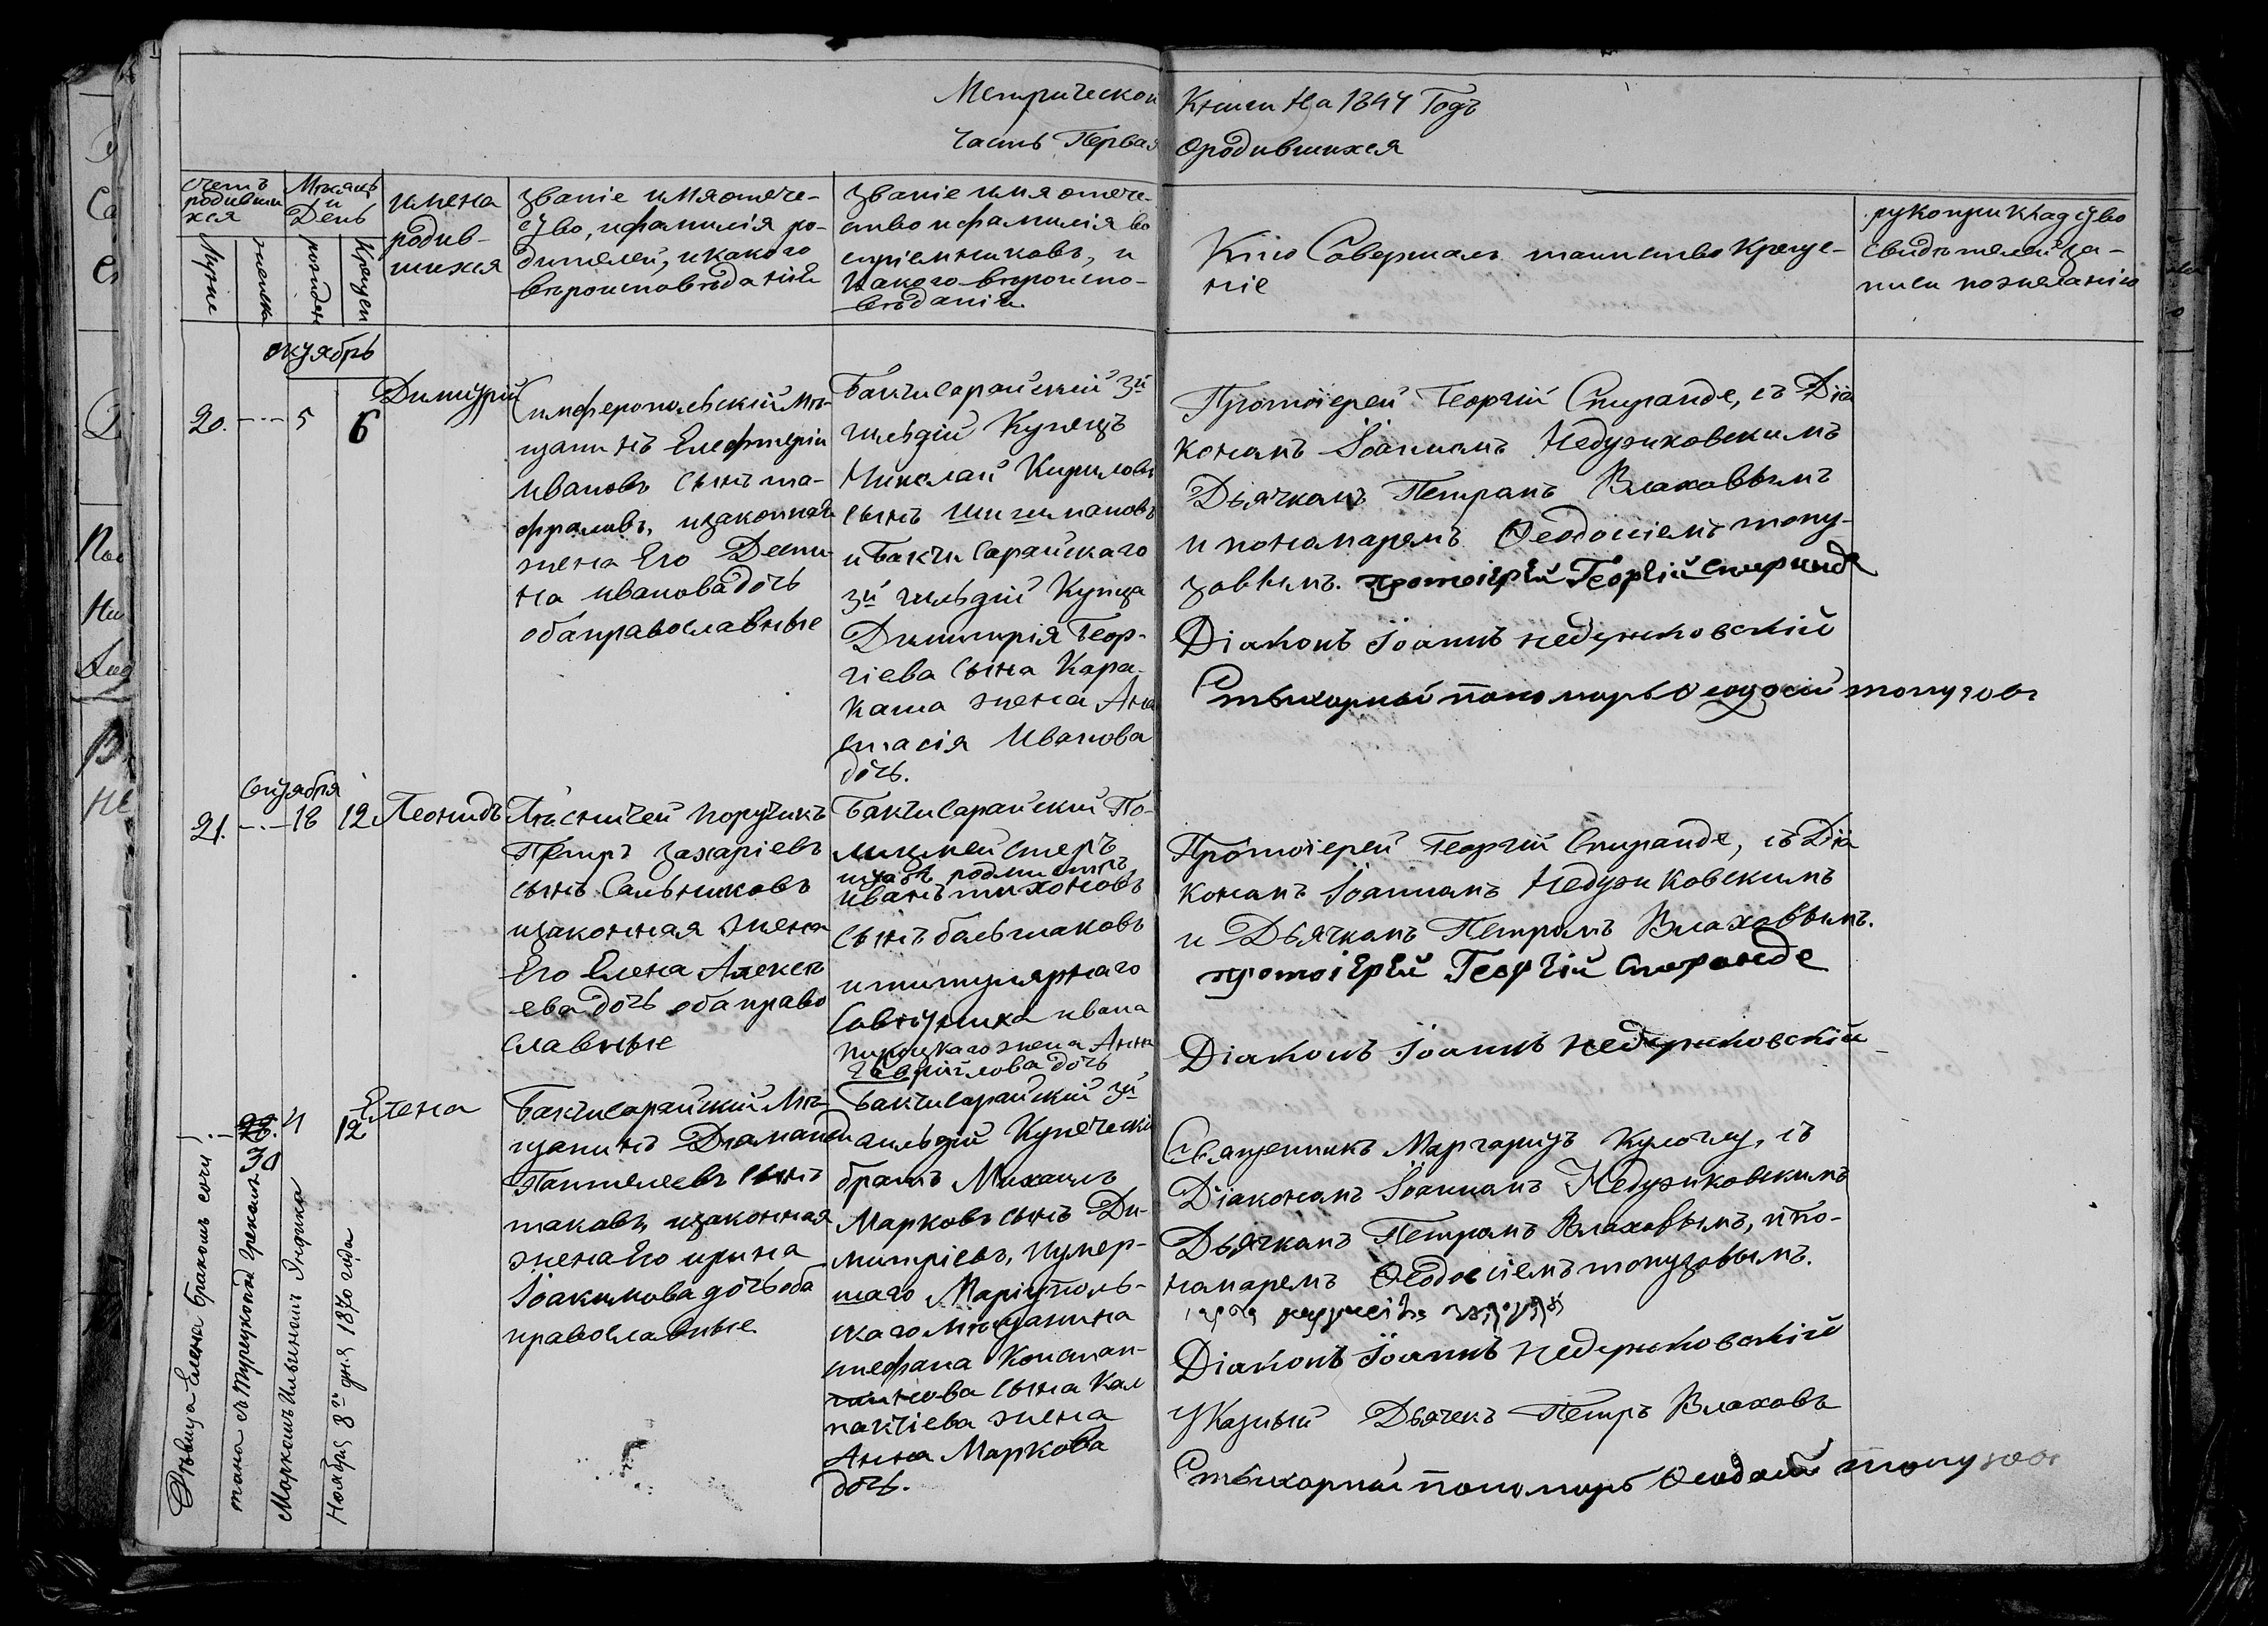 Метрической Книги На 1844 Годъ
Часть Первая О родившихся
Счетъ родивши
хся
Мѣсяцъ
и
День
имена
родив-
шихся
Званіе имя отече-
ство, и фамилія ро-
дителей, и какого
вѣроисповѣданія
Званіе имя отече-
ство и фамилія во
спріемниковъ, и
какого вѣроиспо-
вѣданія.
Кто Совершалъ таинство Креще-
ніе
рукоприкладство
Свидѣтелей за-
писи по желанію
октябрь
20. 5 6
Димитрій
Симферопольскій мѣ-
щанинъ Елефтерій
Ивановъ сынъ
и законная
жена Его
Иванова дочь
оба православные
Бакчисарайскій 3й
гильдіи Купецъ
Николай Кириловъ
сынъ Шишмановъ
и Бакчисарайскаго
3й гильдіи Купца
Димитрія Геор-
гіева сына Кара-
каша жена Ана
стасія Иванова
дочь.
Протоіерей Георгій Спиранде, съ Діа
кономъ Іоанномъ Недузиковскимъ
Дьячкомъ Петромъ Влаховымъ
и пономаремъ Ѳеодосіемъ топу-
зовымъ. протоіерей Георгій Спиранде
Діаконъ Іоаннъ недзиковскій
Стихарный пономарь Ѳеодосій топузовъ
Сентября
21. 18 12 Леонидъ
Лѣсничей поручикъ
Петръ Захаріевъ
сынъ Сальниковъ
и законная жена
Его Елена Алексѣ
ева дочь оба право
славные
Бакчисарайскій По-
лицмейстеръ
штабъ ротмистръ
Иванъ тихоновъ
сынъ башмаковъ
и титулярнаго
Совѣтника ивана
жена Анна
Гаврійлова дочь
Протоіерей Георгій Спиранде, съ Діа
кономъ Іоанномъ Недузиковскимъ
и Дьячкомъ Петромъ Влаховымъ.
протоіерей Георгій Спиранде
Діаконъ Іоаннъ недзиковскій
28. 30 4 12
Елена
Бакчисарайскій Мѣ-
щанинъ Діаманди
Пантелеевъ сынъ
таковъ, и законная
жена Его ирина
Іоакимова дочь оба
православные
Бакчисарайскій 3й
гильдіи Купеческій
братъ Михаилъ
Марковъ сынъ Ди-
митріевъ, и умер-
шаго Маріуполь-
скаго Мѣщанина
стефана Констан-
тинова сына Кал
пакчіева жена
Анна Маркова
дочь.
Священникъ Маргаритъ съ
Діакономъ Іоанномъ Недузиковскимъ
Дьячкомъ Петромъ Влаховымъ, и по-
намаремъ Ѳеодосіемъ топузовымъ.
Діаконъ Іоаннъ недзиковскій
Указный Дьячекъ Петръ Влаховъ
Стихарный пономарь Ѳеодосій топузовъ
Дѣвица Елена бракомъ сочи
тана съ Турецкоподд. Грекомъ
Маркомъ Ильинымъ
Ноября 8го дня 1870 года